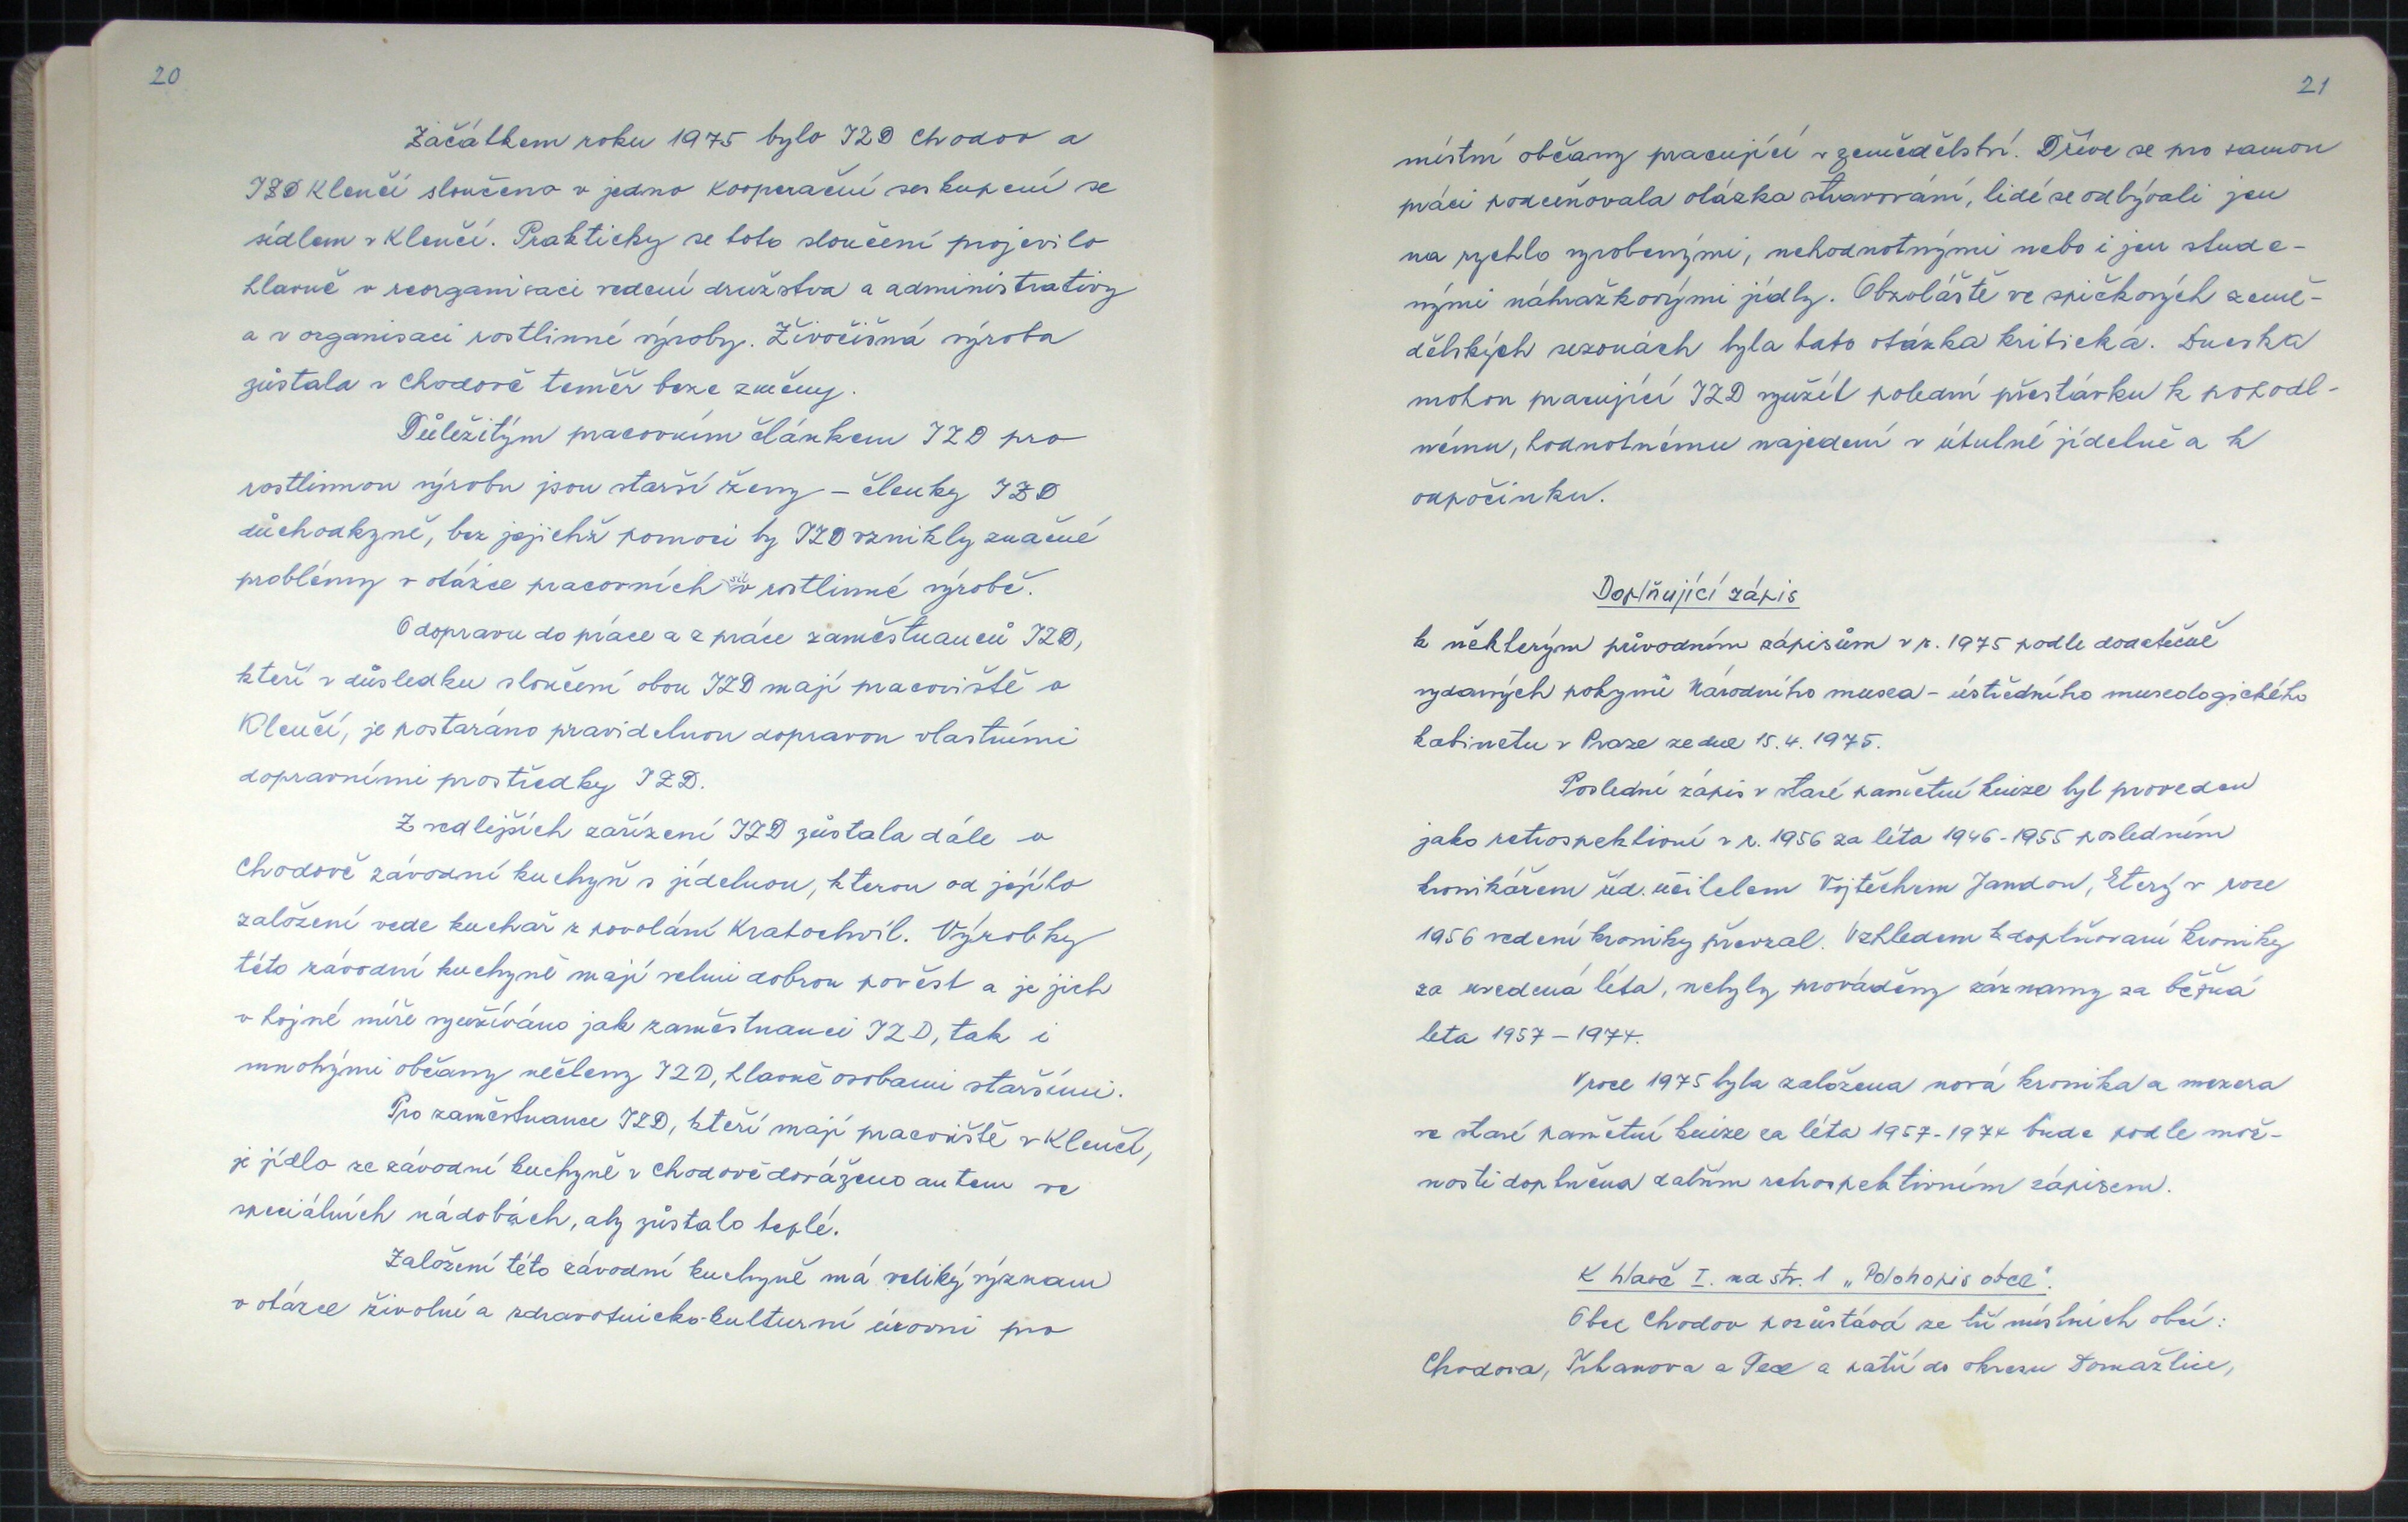 20
Začátkem roku 1975 bylo JZD Chodov a
JZD Klenčí sloučeno v jedno kooperační seskupení se
sídlem v Klenčí. Prakticky se toto sloučení projevilo
hlavně v reorganisaci vedení družstva a administrativy
a v organisaci rostlinné výroby. Živočišná výroba
zůstala v Chodově teměř beze změny.
Důležitým pracovním článkem JZD pro
rostlinnou výrobu jsou starší ženy – členky JZD
důchodkyně, bez jejichž pomoci by JZD vznikly značné
problémy v otázce pracovních sil v rostlinné výrobě.
O dopravu do práce a z práce zaměstnanců JZD,
kteří v důsledku sloučení obou JZD mají pracoviště v
Klenčí, je postaráno pravidelnou dopravou vlastními
dopravními prostředky JZD.
Z vedlejších zařízení JZD zůstala dále v
Chodově závodní kuchyň s jídelnou, kterou od jejího
založení vede kuchař z povolání Kratochvíl. Výrobky
této závodní kuchyně mají velmi dobrou pověst a je jich
v hojné míře využíváno jak zaměstnanci JZD, tak i
mnohými občany nečleny JZD, hlavně osobami staršími.
Pro zaměstnance JZD, kteří mají pracoviště v Klenčí,
je jídlo ze závodní kuchyně v Chodově dováženo autem ve
speciálních nádobách, aby zůstalo teplé.
Založení této závodní kuchyně má veliký význam
v otázce životní a zdravotnicko-kulturní úrovni pro
21
místní občany pracující v zemědělství. Dříve se pro samou
práci podceňovala otázka stravování, lidé se odbývali jen
na rychlo vyrobenými, nehodnotnými nebo i jen stude-
nými náhražkovými jídly. Obzvláště ve špičkových země-
dělských sezonách byla tato otázka kritická. Dneska
mohou pracující JZD využít polední přestávku k pohodl-
nému, hodnotnému najedení v útulné jídelně a k
odpočinku.
Doplňující zápis
k některým původním zápisům v r. 1975 podle dodatečně
vydaných pokynů Národního musea – ústředního museologického
kabinetu v Praze ze dne 15. 4. 1975.
Poslední zápis v staré pamětní knize byl proveden
jako retrospektivní v r. 1956 za léta 1946-1955 posledním
kronikářem říd. učitelem Vojtěchem Jandou, který v roce
1956 vedení kroniky převzal. Vzhledem k doplňovaní kroniky
za uvedená léta, nebyly prováděny záznamy za běžná
leta 1957 – 1974.
V roce 1975 byla založena nová kronika a mezera
ve staré pamětní knize za léta 1957-1974 bude podle mož-
nosti doplněna dalším retrospektivním zápisem.
K hlavě I. na str. 1 „Polohopis obce".
Obec Chodov pozůstává ze tří místních obcí:
Chodova, Trhanova a Pece a patří do okresu Domažlice,